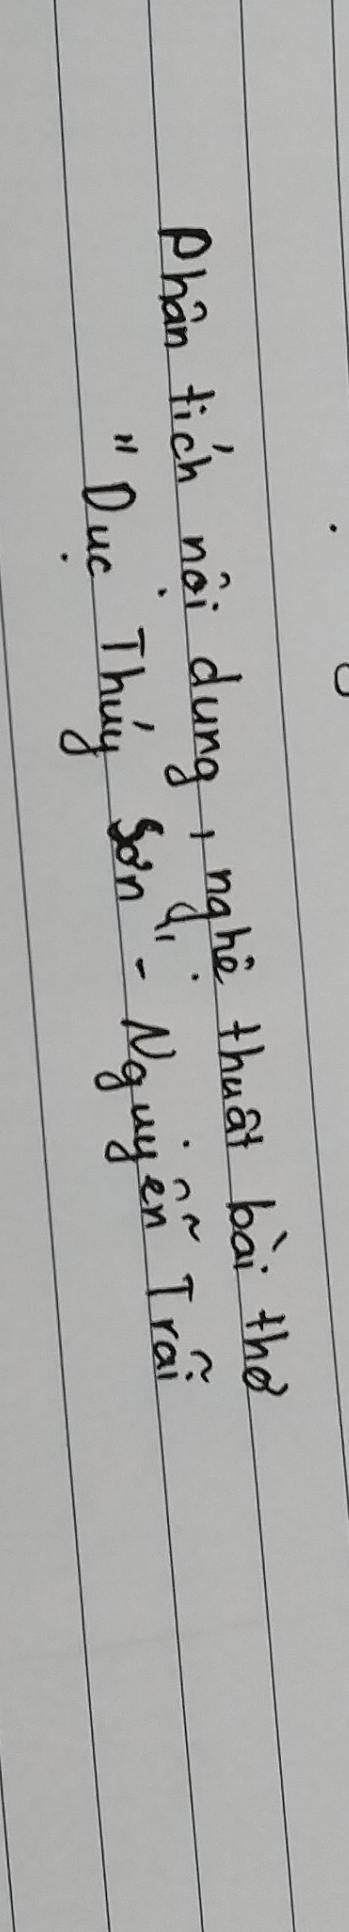 Phân tích nội dung, nghệ thuật bài thơ
"Dục Thúy Sơn" - Nguyễn Trãi